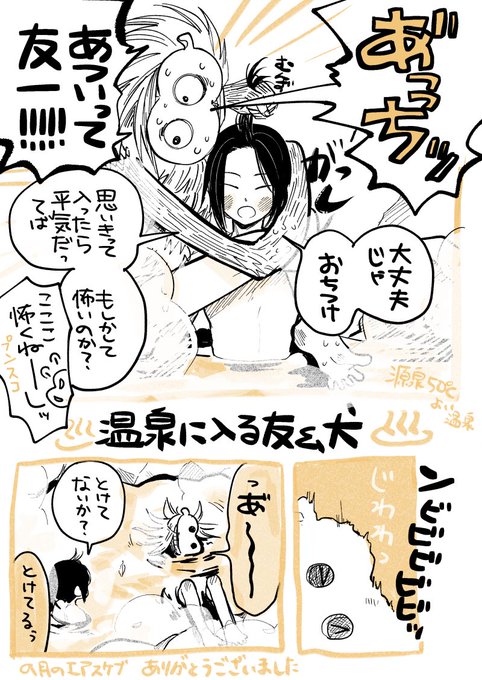 あ゛っっちッ
むぎゅ
あついって
友一!!!!!
がっし
大丈夫
じゃ
おちつけ
思いきって
入ったら
平気だっ
てば
もしかして
怖いのか?
こここ
怖くねーーッ
プンスコ
源泉50℃
よい温泉
温泉に入る友と犬
ンビビビビビッ
じわわっ
っあ゛〜〜
とけて
ないか?
とけてるぅ
の月のエアスケブ ありがとうございました